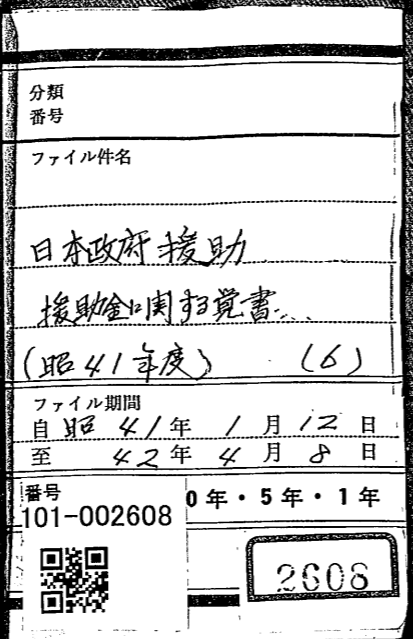 分類
番号
ファイル件名
日本政府援助
援助金に関する覚書...
(昭41年度) (6)
ファイル期間
自 昭 41年 1月 12日
至 42年 4月 8日
0年・5年・1年
番号
101-002608
2608